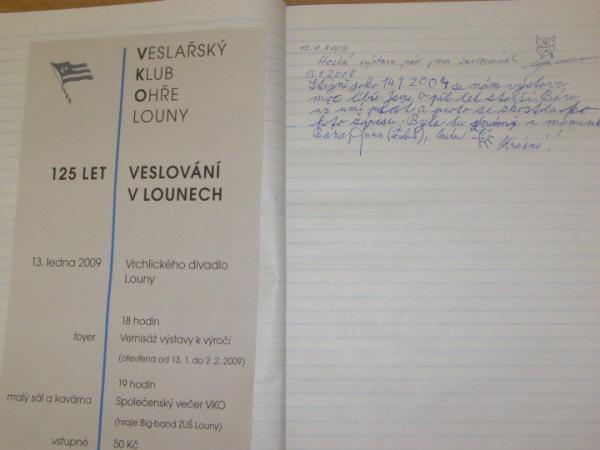 VESLAŘSKÝ
KLUB
OHŘE
LOUNY
125 LET VESLOVÁNÍ
V LOUNECH
13. ledna 2009 Vrchlického divadlo
Louny
18 hodin
foyer Vernisáž výstavy k výročí
(otevřena od 13. 1. do 2 .2. 2009)
19 hodin
malý sál a kavárna Společenský večer VKO
(hraje Big-band ZUŠ Louny)
vstupné 50 Kč
13.1.2009
Hezká výstava,
13.1.2009
Stejně jako 14.1.2004 se nám výstava
moc líbí. Jsme o pět let starší, Bára
už umí psát a proto se zhostila
toto zápisu. Byla tu s námi i maminka
Bára,
Krásné!!